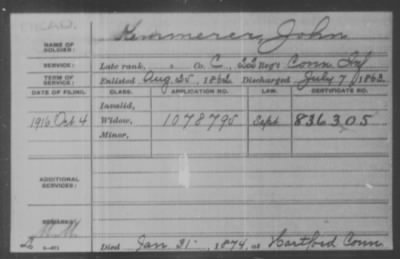 NAME OF SOLDIER: Kemmerer, John
SERVICE: Late rank, , Co. C, 22 Reg't Conn Inf
TERM OF SERVICE: Enlisted Aug 25, 1862 Discharged July 7, 1863
DATE OF FILING. CLASS. APPLICATION NO. LAW. CERTIFICATE NO.
Invalid,
1916 Oct 4 Widow, 1078795 Sept 836305
Minor,
ADDITIONAL SERVICES:
REMARKS:
Died Jan 31, 1874, at Hartford Conn.